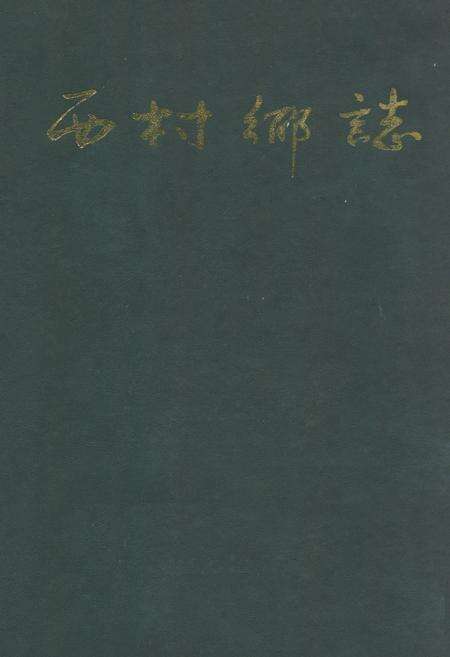 西村鄉誌